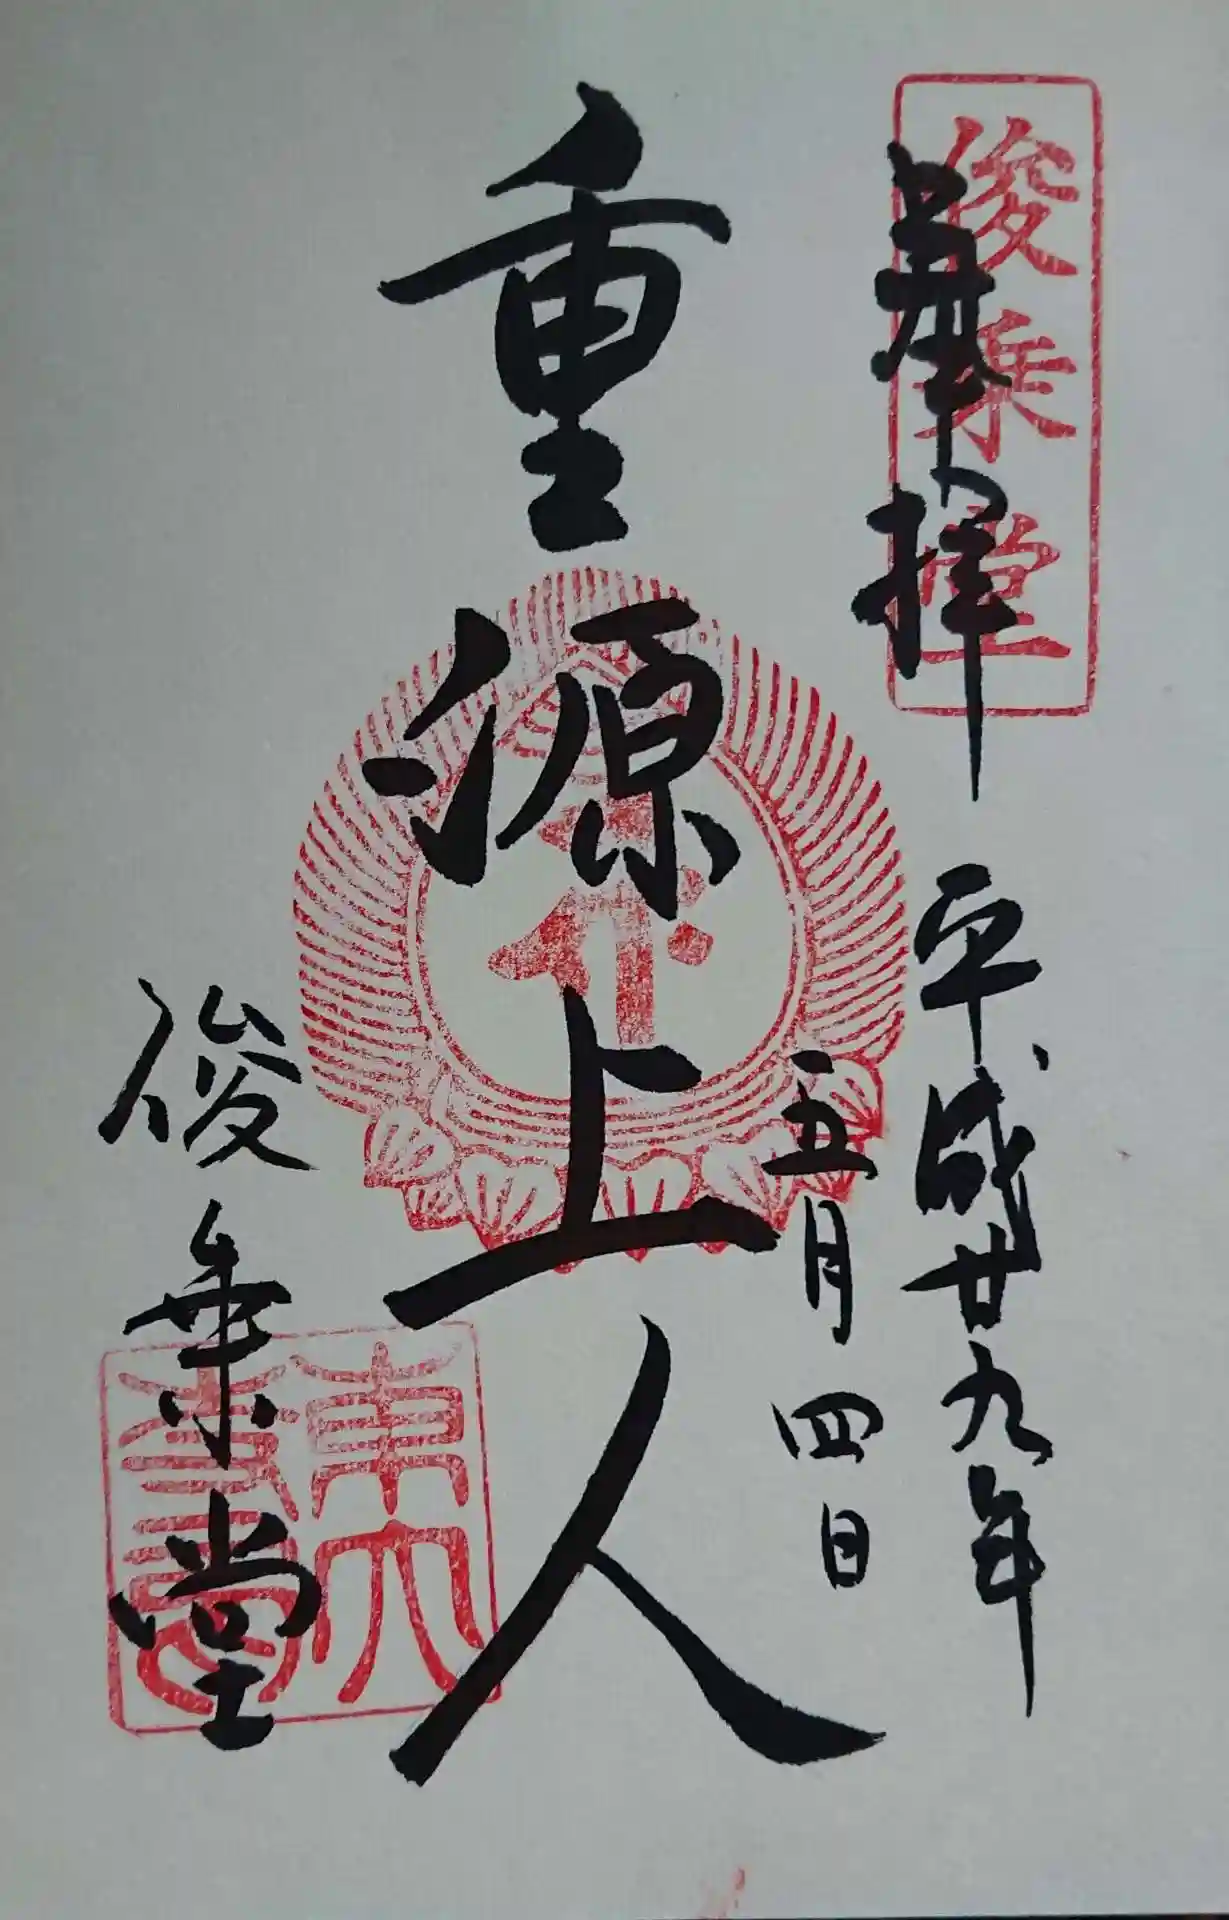 俊乗堂
奉拝
平成廿九年
五月四日
重源上人
俊乗堂